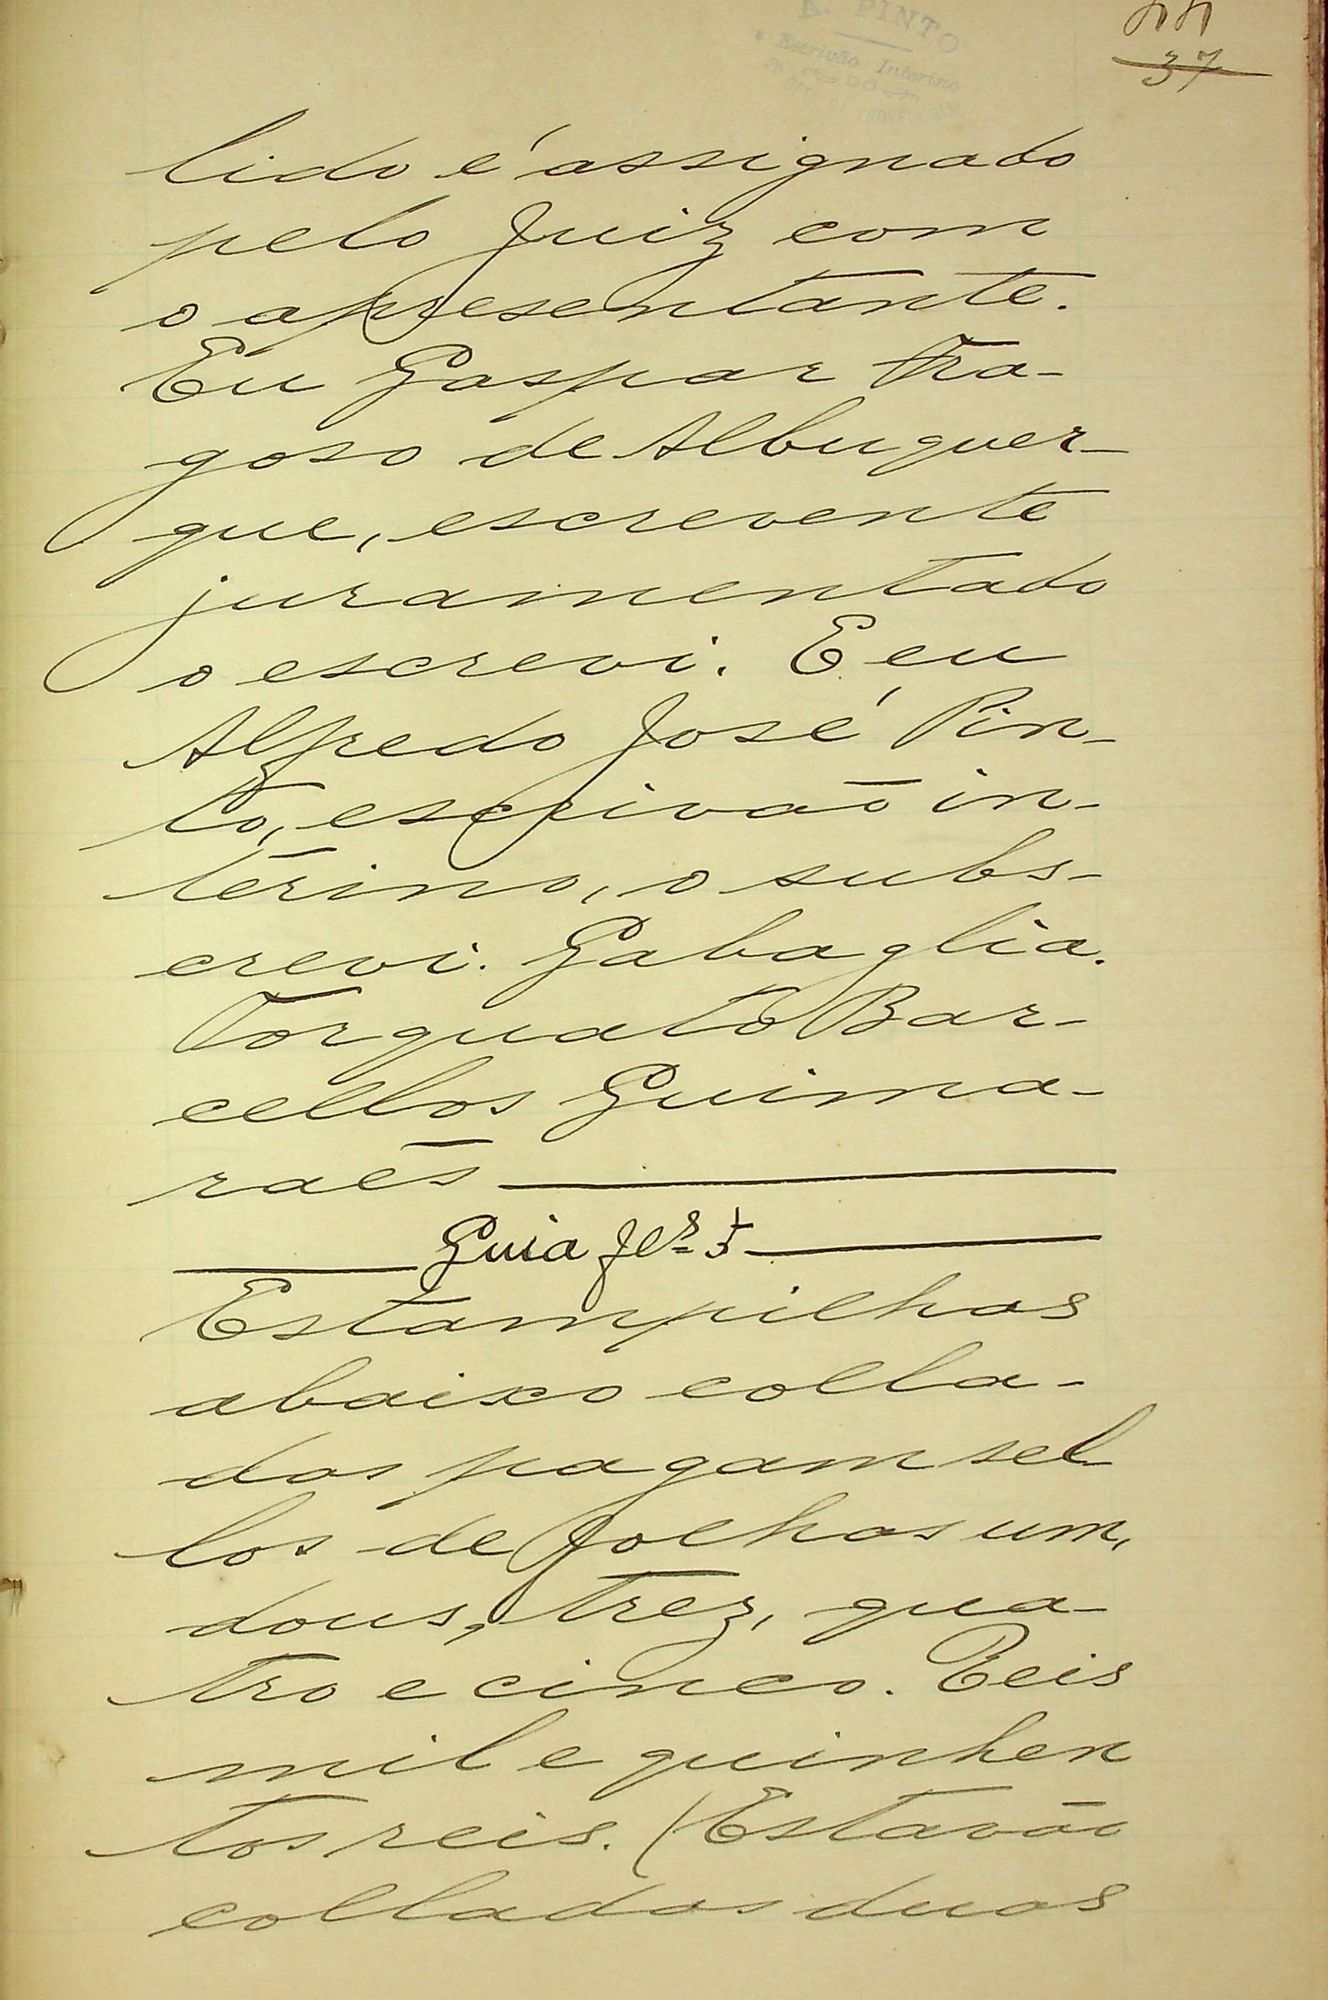 A. PINTO
Escrivão Interino
37
lido é assignado
pelo Juiz com
o apresentante.
Eu Gaspar Fra-
goso de Albuquer-
que, escrevente
juramentado
o escrevi. E, eu
Alfredo José Pin-
to, escrivão in-
terino, o subs-
crevi. Gabaglia.
Torquato Bar-
cellos Guima-
raẽs
Guia fls 5
Estampilhas
abaixo colla-
das pagam sel
los de folhas um,
dous, trez, qua-
tro e cinco. Reis
mil e quinhen
tos reis. (Estavão
colladas duas